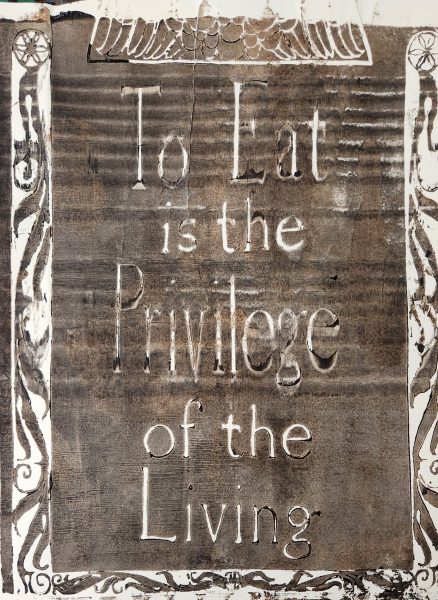 To Eat
is the
Privilege
of the
Living